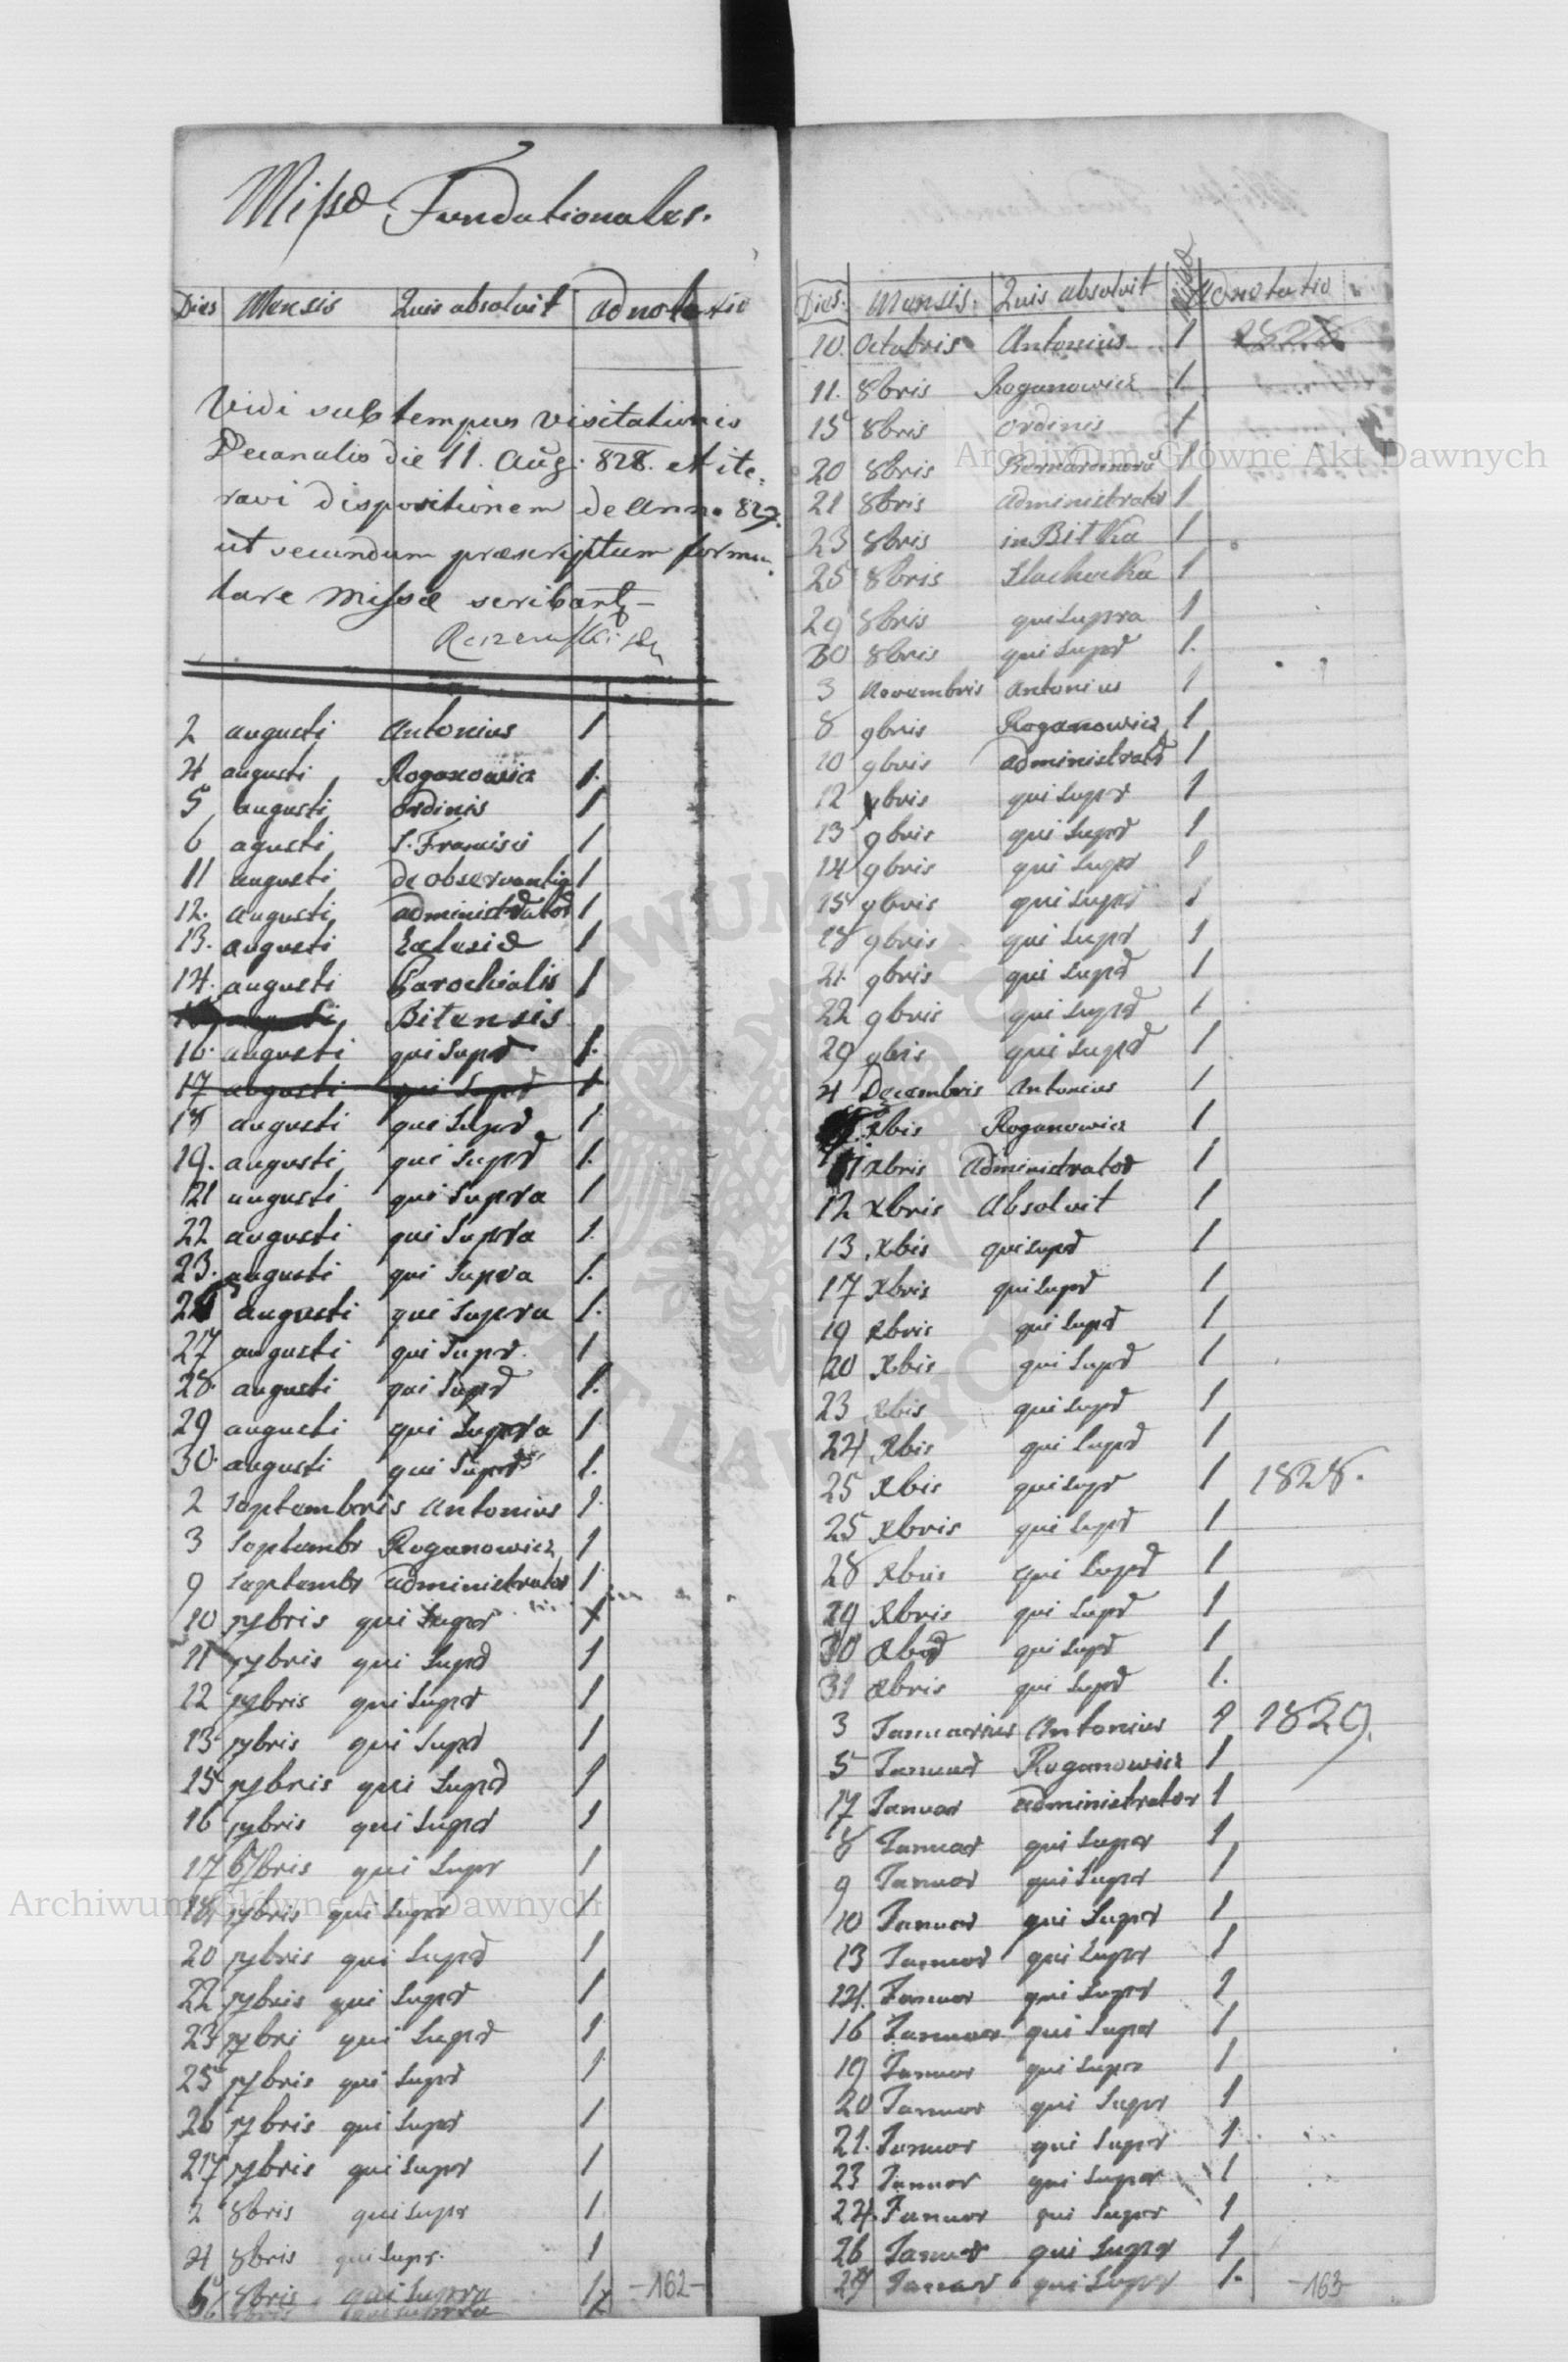 Missæ Fundationales.
Dies Mensis Quis absolvit adnotatio
Vidi sub tempus visitationis
Decanalis die 11. Aug: 828. et ite=
ravi dispositionem de anno 827.
ut secundum præscriptum formu=
lare Missæ scribant
2 augusti Antonius 1
4 augusti Roganowicz 1.
5 augusti ordinis 1
6 agusti S. Francisci 1
11 augusti de observantia 1
12. augusti administrator 1
13. augusti Eclesiæ 1
14. augusti Parochialis 1
Bitensis
16. augusti qui Supr 1.
17 augusti qui Supr 1
18 augusti qui Supr 1
19. augusti qui Supr 1.
21 augusti qui Supra 1
22 augusti qui Supra 1.
23. augusti qui Supra 1.
augusti qui Supra 1.
27 augusti qui Supr. 1
28. augusti qui Supr 1.
29 augusti qui Supra 1
30. augusti qui Supr 1.
2 Septembris Antonius 1.
3 Septembr Roganowicz 1
9 Septembr administrator 1
10 7bris qui Supr 1
11 7bris qui Supr 1
12 7bris qui Supr 1
13 7bris qui Supr 1
15 7bris qui Supr 1
16 7bris qui Supr 1
17 7bris qui Supr 1
18 7bris qui Supr 1
20 7bris qui Supr 1
22 7bris qui Supr 1
23 7bri qui Supr 1
25 7bris qui Supr 1
26 7bris qui Supr 1
27 7bris qui Supr 1
2 8bris qui Supr 1
4 8bris qui Supr. 1
6 8bris qui Supra 1
-162-
Dies. Mensis. Quis absolvit Missæ Adnotatio
10. Octobris Antonius 1 1828
11. 8bris Roganowicz 1
15 8bris ordinis 1
20 8bris 1
21 8bris administrator 1
23 8bris in Bitka 1
25 8bris Slachecka 1
29 8bris qui Supra 1
30 8bris qui Supr 1.
3 Novembris Antonius 1
8 9bris Roganowicz 1
10 9bris administrator 1
12 9bris qui Supr 1
13 9bris qui Supr 1
14 9bris qui Supr 1
15 9bris qui Supr 1
18 9bris qui Supr 1
21. 9bris qui Supr 1
22 9bris qui Supr 1
29 9bris qui Supr 1
4 Decembris Antonius 1
Xbis Roganowicz 1
11 Xbris Administrator 1
12 Xbris Absolvit 1
13 Xbis qui Supr 1
17 Xbris qui Supr 1
19 Xbris qui Supr 1
20 Xbis qui Supr 1
23 Xbis qui Supr 1
24 Xbis qui Supr 1
25 Xbis qui Supr 1 1828.
25 Xbris qui Supr 1
28 Xbris qui Supr 1
29 Xbris qui Supr 1
30 Xbr qui Supr 1
31 Xbris qui Supr 1.
3 Januarius Antonius 1 1829.
5 Januar Roganowicz 1
17 Januar administrator 1
8 Januar qui Supr 1
9 Januar qui Supr 1
10 Januar qui Supr 1
13 Januar qui Supr 1
14. Januar qui Supr 1
16 Januar qui Supr 1
19 Januar qui Supr 1
20 Januar qui Supr 1
21. Januar qui Supr 1
23 Januar qui Supr 1
24. Januar qui Supr 1
26 Januar qui Supr 1
27 Januar qui Supr 1.
-163-
Archiwum Główne Akt Dawnych
Archiwum Główne Akt Dawnych